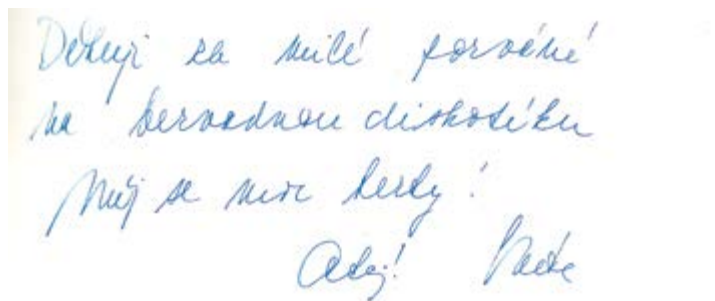 Děkuji za milé pozvání
na bezvadnou diskotéku
Měj se moc hezky!
Ahoj!